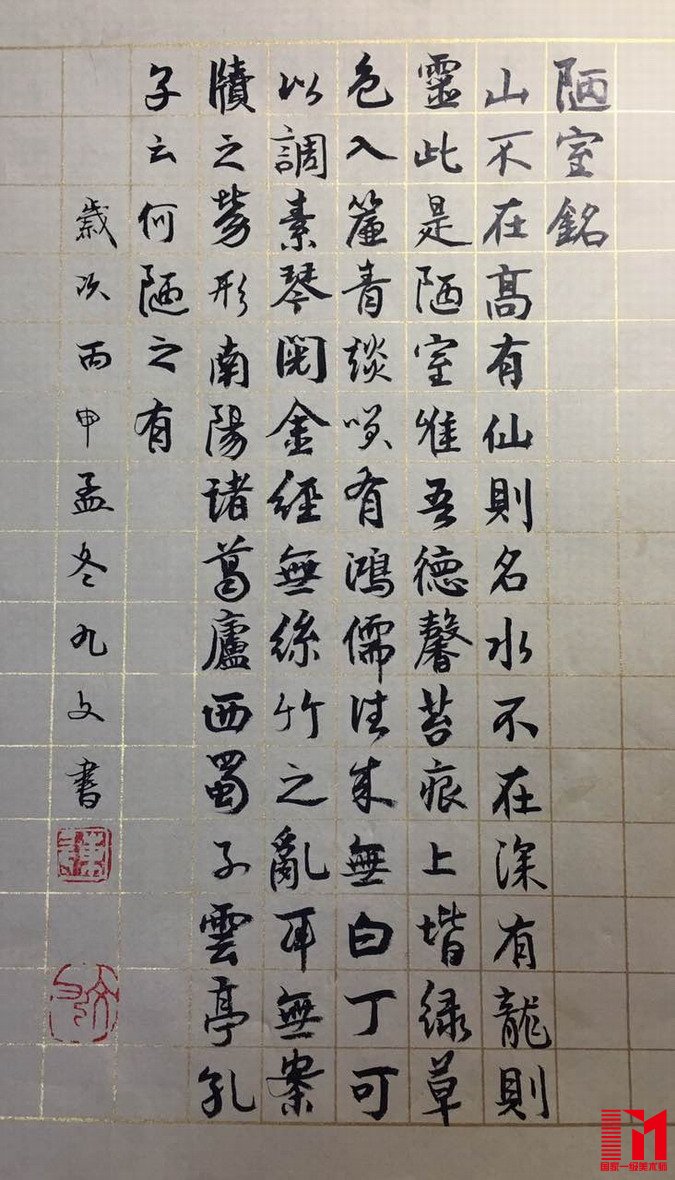 陋室銘
山不在高有仙則名水不在深有龍則
靈此是陋室惟吾德馨苔痕上堦緑草
色入簾青談咲有鴻儒往来無白丁可
以調素琴閱金經無絲竹之亂耳無案
牘之勞形南陽諸葛廬西蜀子雲亭孔
子云何陋之有
歲次丙申孟冬九文書
国家一级美术师